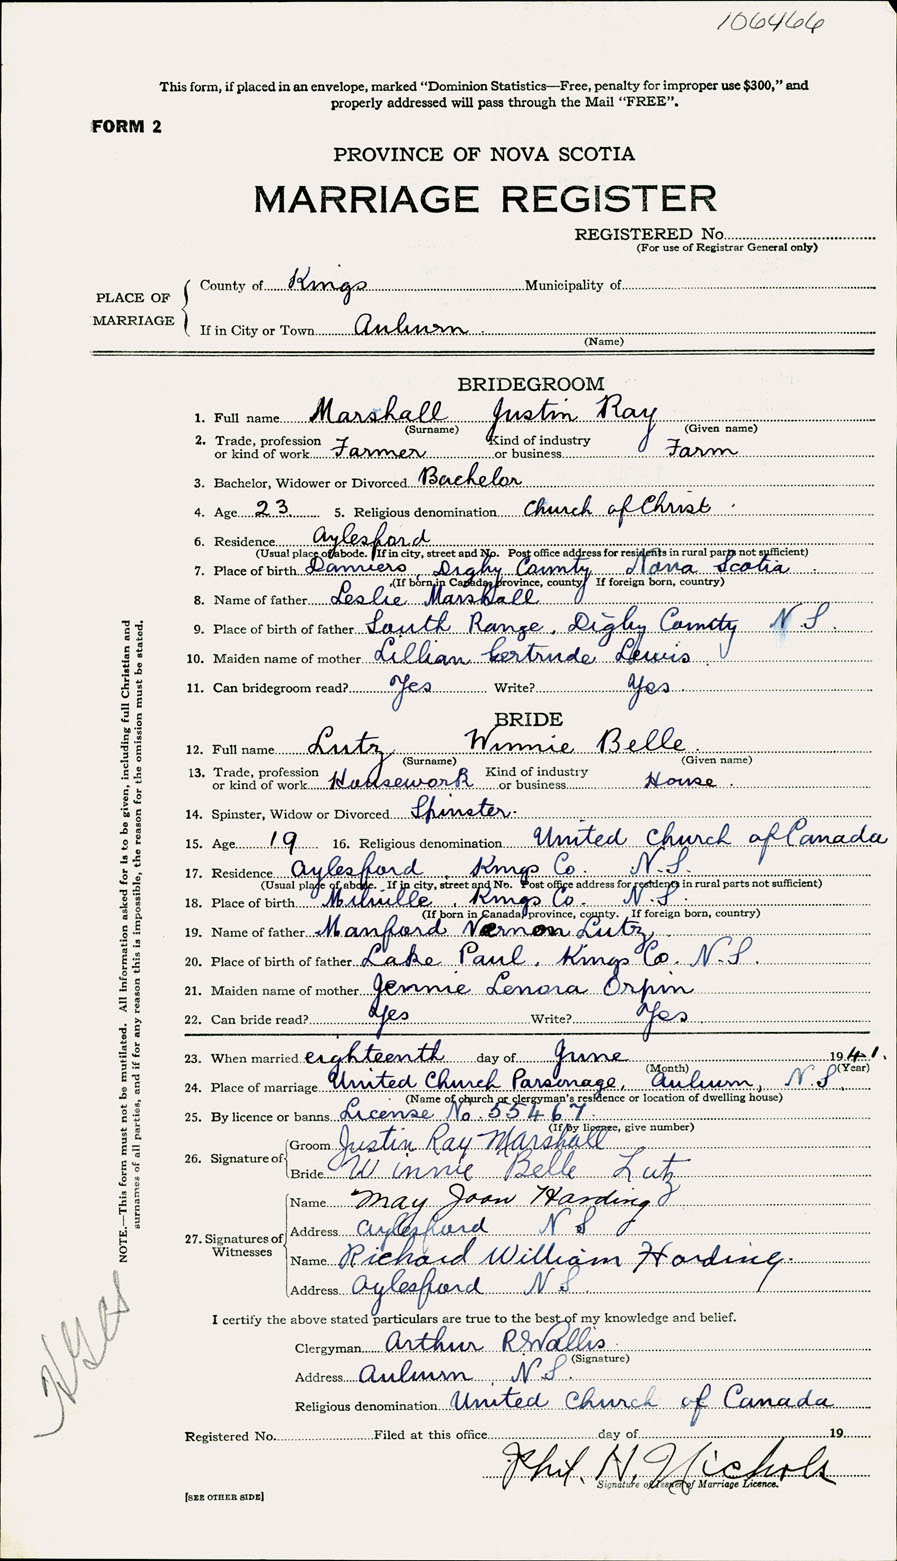 106466
This form, if placed in an envelope, marked “Dominion Statistics—Free, penalty for improper use $300,” and
properly addressed will pass through the Mail “FREE”.
FORM 2
PROVINCE OF NOVA SCOTIA
MARRIAGE REGISTER
REGISTERED No.
(For use of Registrar General only)
PLACE OF MARRIAGE
County of Kings Municipality of
If in City or Town Auburn
(Name)
BRIDEGROOM
1. Full name Marshall Justin Ray
(Surname) (Given name)
2. Trade, profession or kind of work Farmer Kind of industry or business Farm
3. Bachelor, Widower or Divorced Bachelor
4. Age 23 5. Religious denomination Church of Christ
6. Residence Aylesford
(Usual place of abode. If in city, street and No. Post office address for residents in rural parts not sufficient)
7. Place of birth Danviers, Digby County Nova Scotia
(If born in Canada, province, county. If foreign born, country)
8. Name of father Leslie Marshall
9. Place of birth of father South Range, Digby County N.S.
10. Maiden name of mother Lillian Gertrude Lewis
11. Can bridegroom read? Yes Write? Yes
BRIDE
12. Full name Lutz Winnie Belle
(Surname) (Given name)
13. Trade, profession or kind of work Housework Kind of industry or business House
14. Spinster, Widow or Divorced Spinster
15. Age 19 16. Religious denomination United Church of Canada
17. Residence Aylesford, Kings Co. N.S.
(Usual place of abode. If in city, street and No. Post office address for residents in rural parts not sufficient)
18. Place of birth Milville, Kings Co. N.S.
(If born in Canada, province, county. If foreign born, country)
19. Name of father Manford Vernon Lutz
20. Place of birth of father Lake Paul, Kings Co. N.S.
21. Maiden name of mother Jennie Lenora Orpin
22. Can bride read? Yes Write? Yes
23. When married eighteenth day of June 1941.
(Month) (Year)
24. Place of marriage United Church Parsonage, Auburn, N.S.
(Name of church or clergyman's residence or location of dwelling house)
25. By licence or banns License No. 55467
(If by licence, give number)
26. Signature of
Groom Justin Ray Marshall
Bride Winnie Belle Lutz
27. Signatures of Witnesses
Name May Joan Harding
Address Aylesford N S
Name Richard William Harding.
Address Aylesford N S
I certify the above stated particulars are true to the best of my knowledge and belief.
Clergyman Arthur R Wallis
(Signature)
Address Auburn, N.S.
Religious denomination United Church of Canada
Registered No. Filed at this office day of 19
Phil. H. Nichols
Signature of Issuer of Marriage Licence.
[SEE OTHER SIDE]
NOTE.—This form must not be mutilated. All information asked for is to be given, including full Christian and
surnames of all parties, and if for any reason this is impossible, the reason for the omission must be stated.